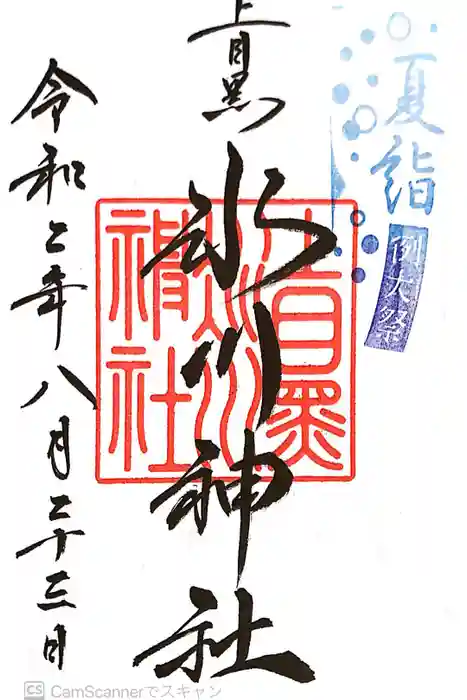 夏詣
例大祭
上目黒
氷川神社
上目黒氷川神社
令和二年八月二十三日
CS CamScannerでスキャン